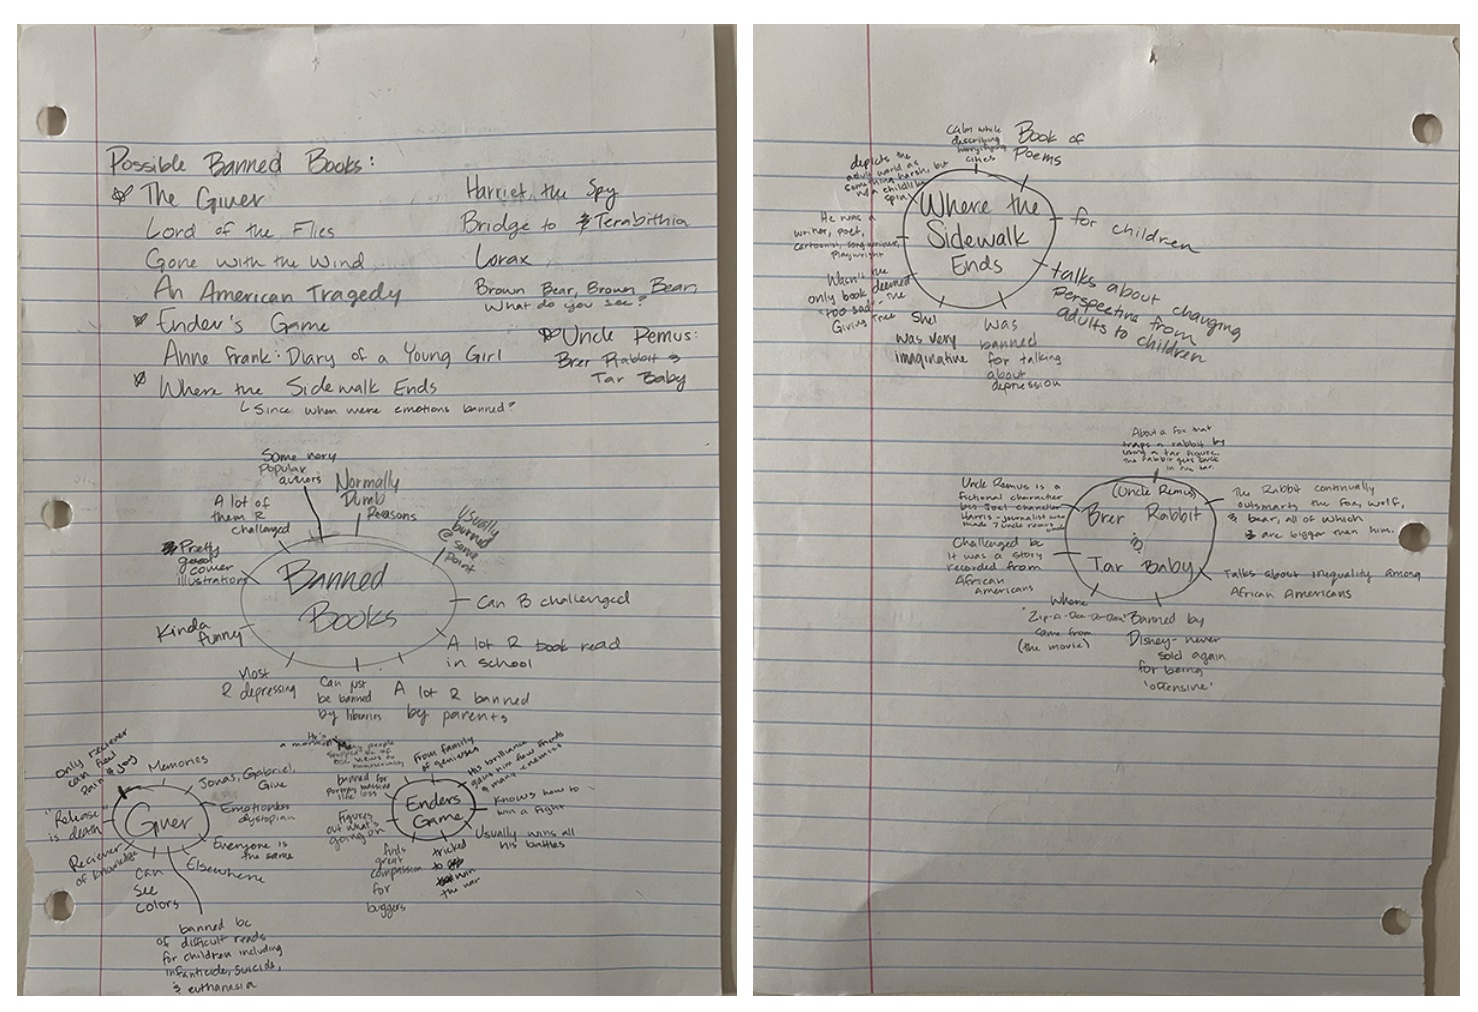 Possible Banned Books:
The Giver
Lord of the Flies
Gone with the Wind
An American Tragedy
Ender's Game
Anne Frank: Diary of a Young Girl
Where the Sidewalk Ends
Since when were emotions banned?
Harriet the Spy
Bridge to Terabithia
Lorax
Brown Bear, Brown Bear,
What do you see?
Uncle Remus:
Brer Rabbit &
Tar Baby
Banned
Books
Some very
popular
authors
Normally
Dumb
Reasons
Usually
burned
@ some
point
Can B challenged
A lot R read
in school
A lot R banned
by parents
Can just
be banned
by libraries
Most
R depressing
Kinda
funny
Pretty
good
cover
illustrations
A lot of
them R
challenged
Giver
Only reciever
can feel
pain & joy
Memories
Jonas, Gabriel,
Give
Emotionless
dystopian
Everyone is
the same
Elsewhere
banned bc
of difficult reads
for children including
infanticide, suicide,
& euthanasia
Can
see
colors
Reciever
of knowledge
"Release"
is death
Enders
Game
He's
a mormon
From family
of geniuses
His brilliance
gains him few friends
& many enemies
Knows how to
win a fight
Usually wins all
his battles
tricked
to
win
the war
finds
great
compassion
for
buggers
figures
out what's
going on
banned for
portray massive
life loss
Where the
Sidewalk
Ends
calm while
describing
horrifying
cities
Book of
Poems
for children
talks about changing
Perspective from
adults to children
was
banned
for talking
about
depression
Shel
was very
imaginative
Wasn't the
only book deemed
"too sad" - the
Giving Tree
He was a
writer, poet,
cartoonist, songwriter,
playwright
depicts the
adult world as
something harsh, but
w/ a childlike
spin
(Uncle Remus)
Brer Rabbit
&
Tar Baby
About a fox that
traps a rabbit by
using a tar figure.
The Rabbit gets stuck
in the tar.
The Rabbit continually
outsmarts the fox, wolf,
& bear, all of which
are bigger than him.
Talks about inequality among
African Americans
Banned by
Disney - never
sold again
for being
"offensive"
Where
"Zip-A-Dee-Do-Dah"
came from
(the movie)
Challenged bc
it was a story
recorded from
African
Americans
Uncle Remus is a
fictional character
by Joel Chandler
Harris - journalist who
made 7 Uncle Remus